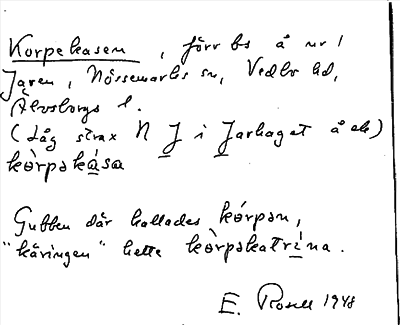 Korpekasen, förr bs å nr 1
Jaren, Nössemarks sn, Vedbo hd,
Älvsborgs l.
(Låg strax N J i Jarhaget å ek)
kòrpəka̱sa
Gubben där kallades kórpən,
"käringen" hette kòrpəkatrı̱́na.
E. Rosell 1948